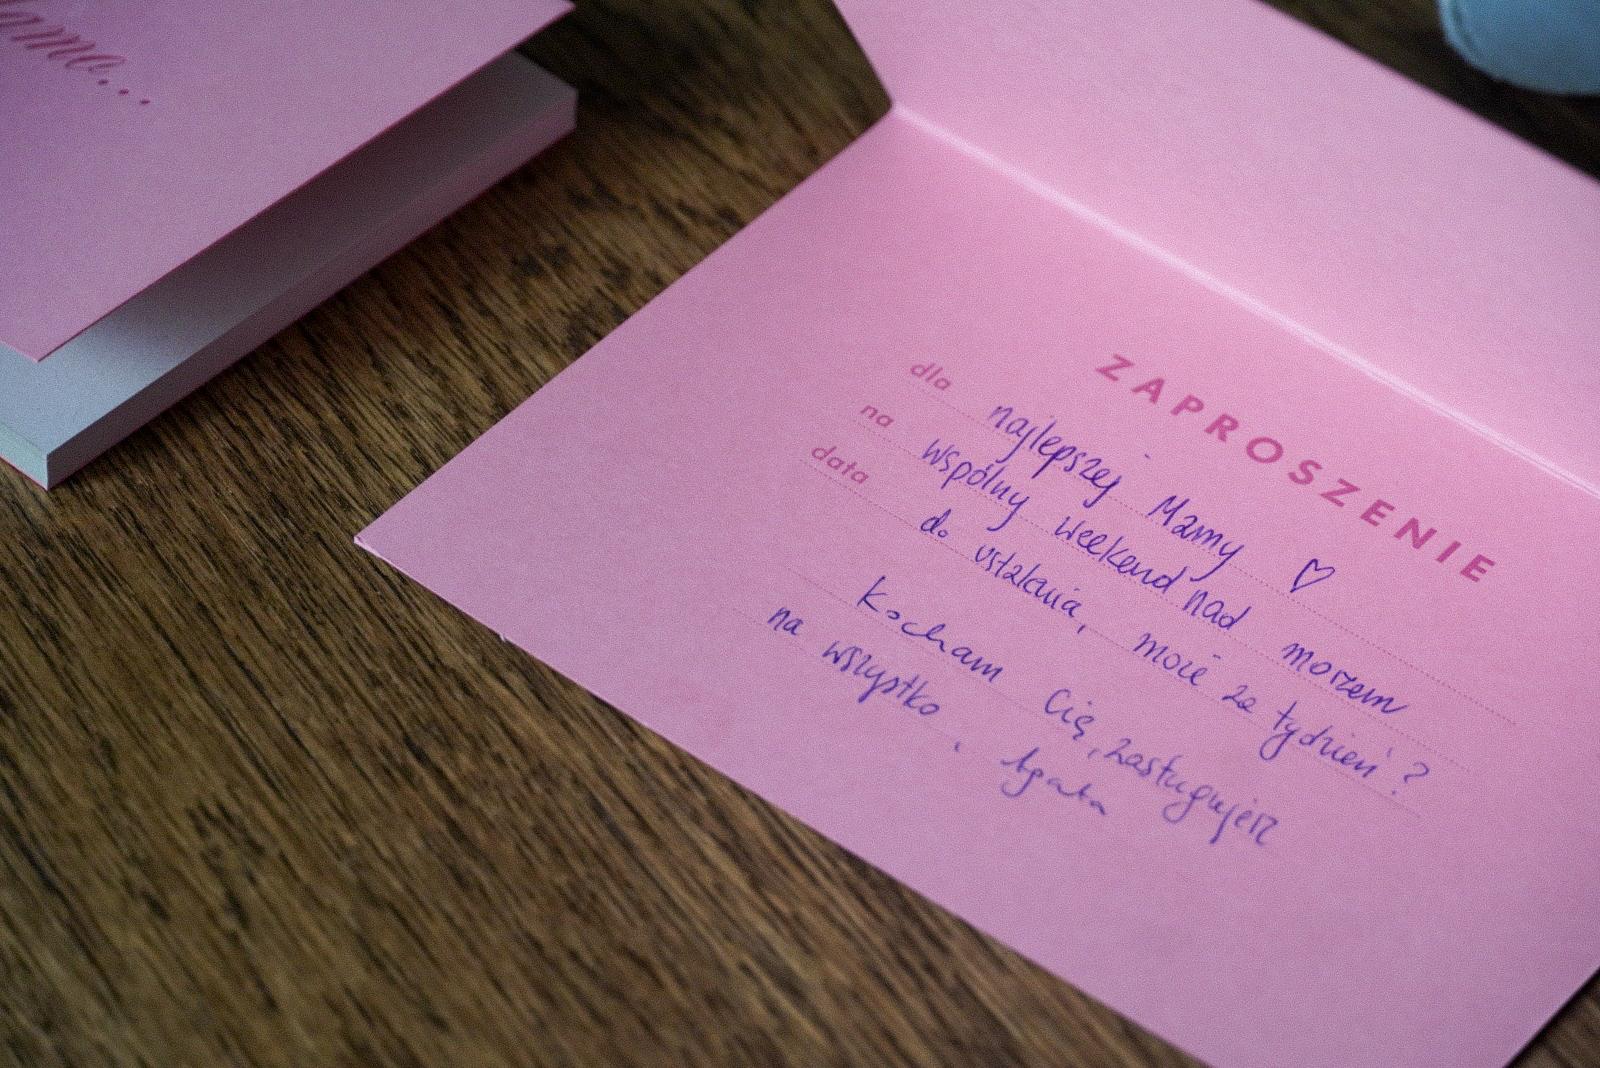 ame...
ZAPROSZENIE
dla najlepszej Mamy ♡
na wspólny weekend nad morzem
data do ustalenia, może za tydzień?
Kocham Cię, zasługujesz
na wszystko, Agata